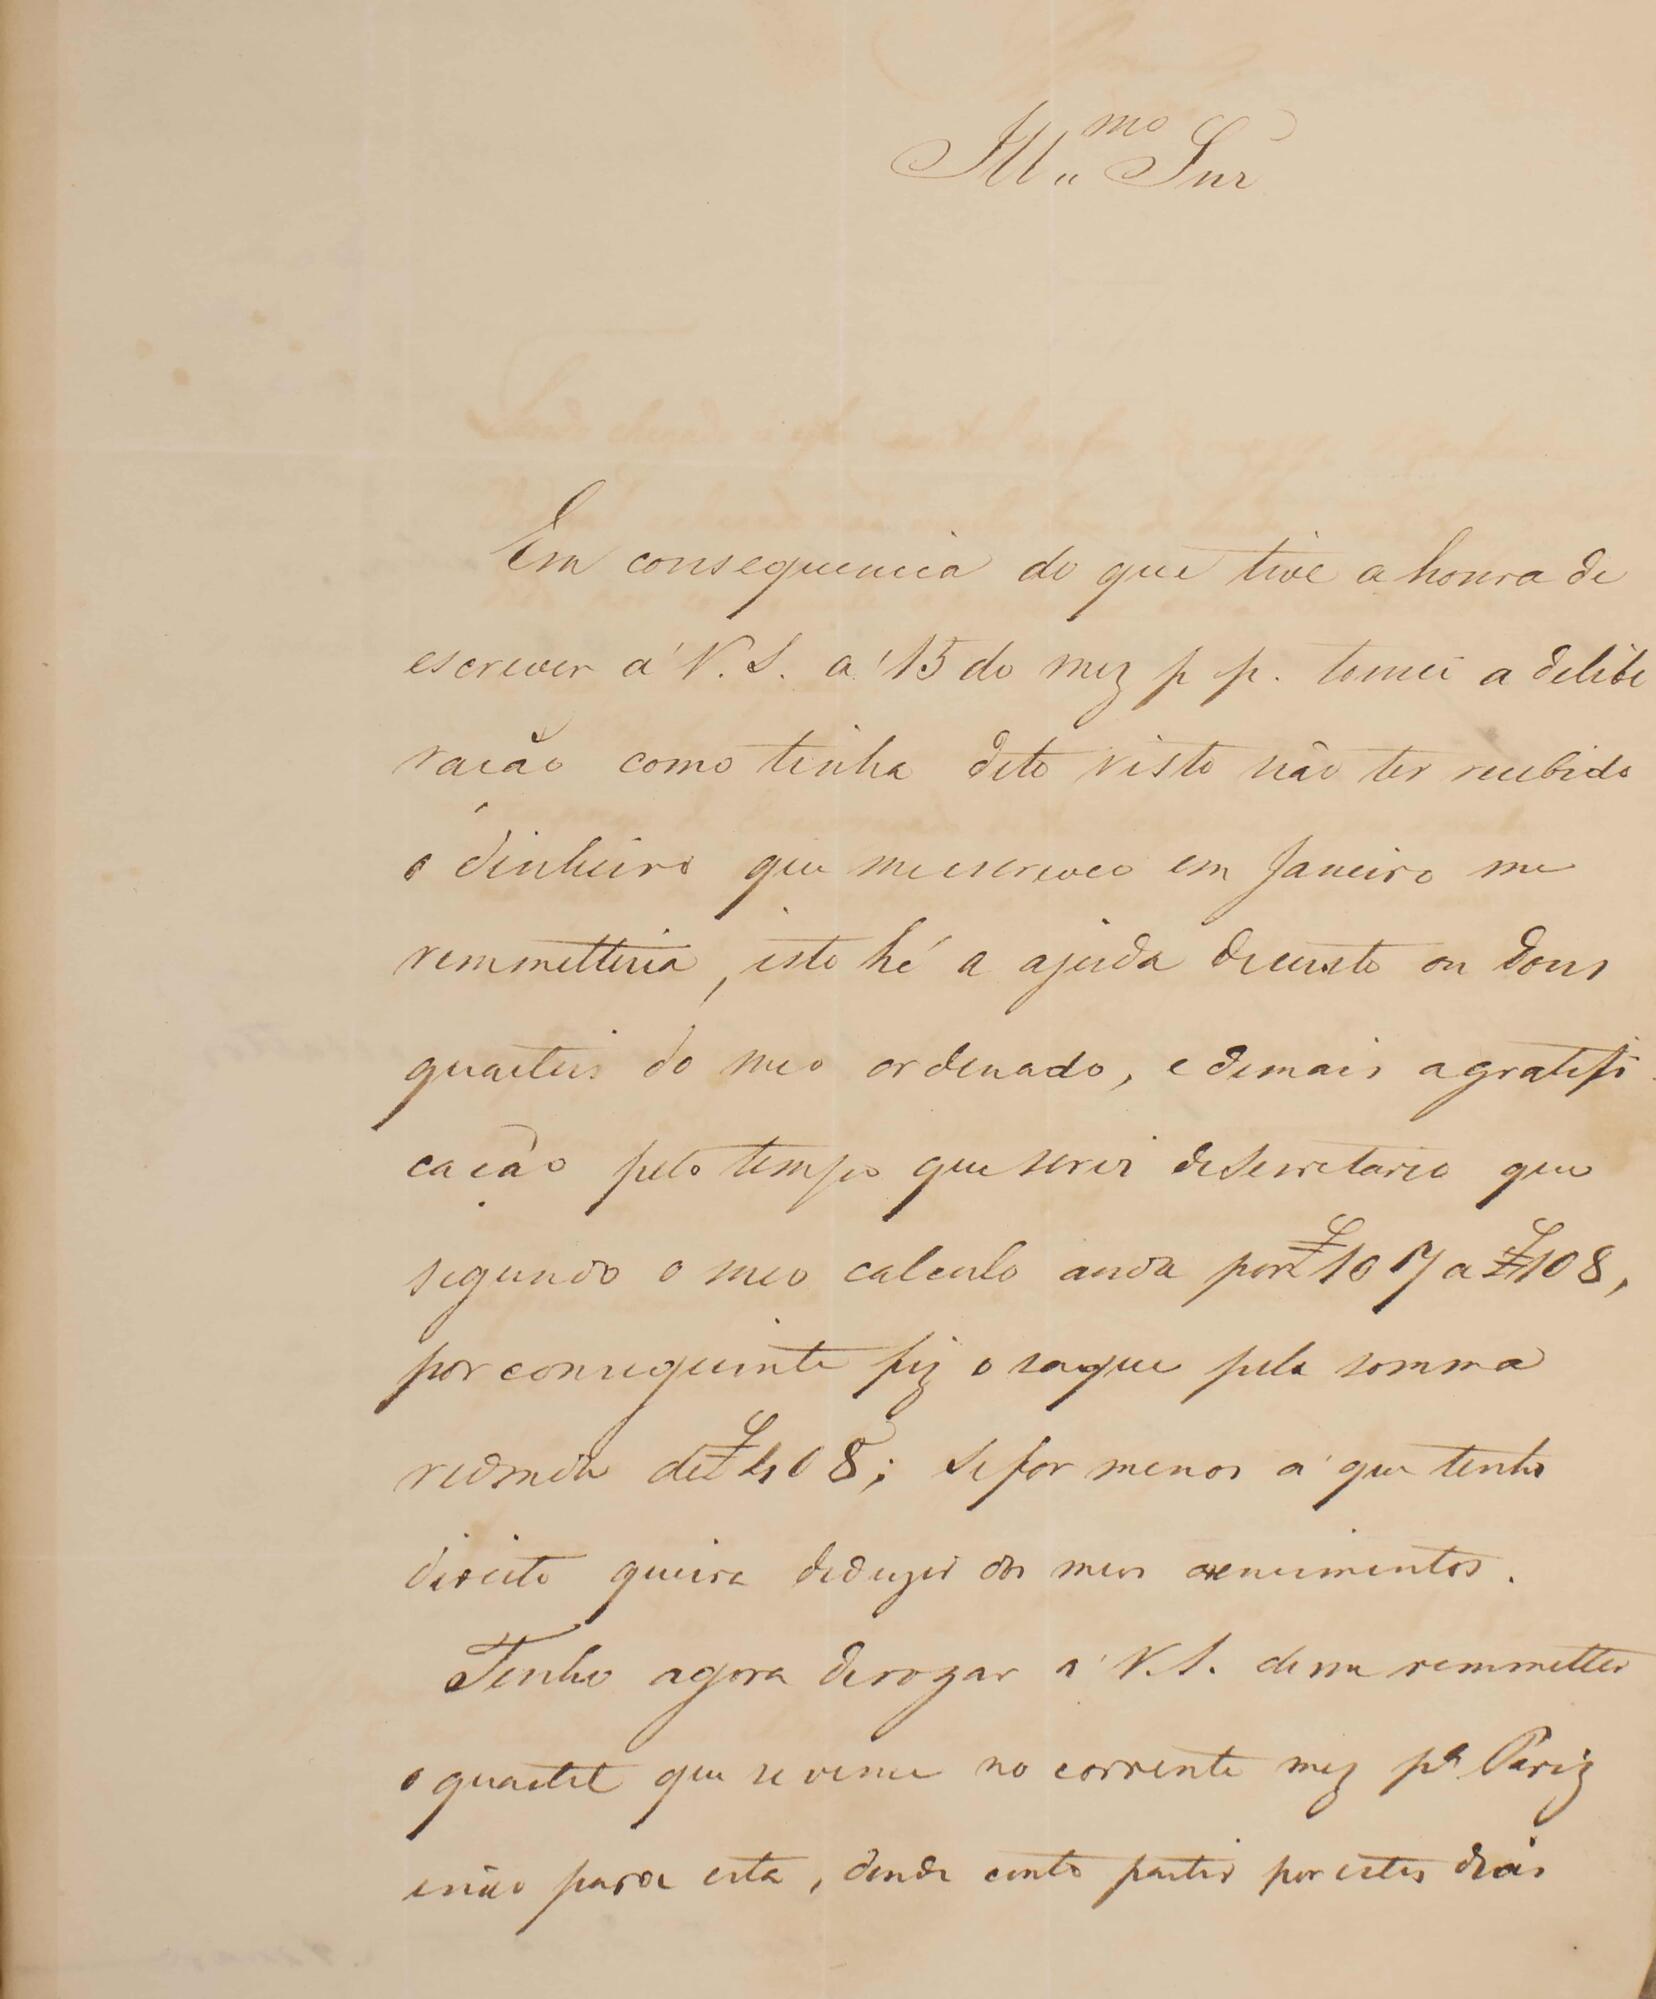 Ill.mo Snr
Em consequencia do que tive a honra de
escrever á V. S. a 15 do mez p p. tomei a delibe
ração como tinha dito visto não ter recebido
o dinheiro que me escreveo em Janeiro me
remmetteria, isto hé a ajuda de custo ou dous
quarteis do meo ordenado, e demais a gratifi
cação pelo tempo que servi de secretario que
segundo o meo calculo anda por £107 a £108,
por conseguinte fiz o saque pela somma
redonda de £108; se for menos á que tenho
direito queira deduzir dos meus vencimentos.
Tenho agora de rogar á V.S. de me remmetter
o quartel que se vence no corrente mez pa Pariz
e não para esta, donde conto partir por estes dias